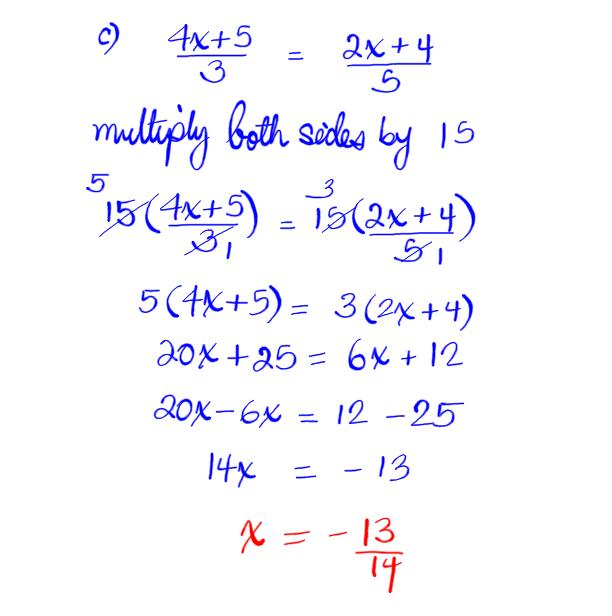 c) (4x+5)/3 = (2x+4)/5
multiply both sides by 15
5 15((4x+5)/3 1) = 3 15((2x+4)/5 1)
5(4x+5) = 3(2x+4)
20x+25 = 6x+12
20x-6x = 12-25
14x = -13
x = -13/14